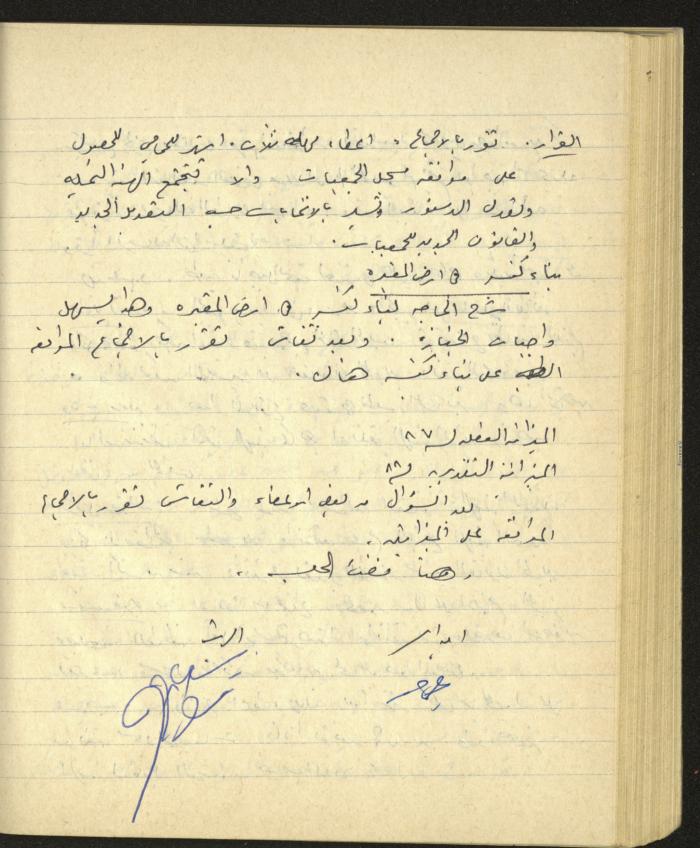 القرار. تقرر بالاجماع: اعطاء مهلة ثلاث اشهر للمحامي للحصول
على موافقة مسجل الجمعيات والا تجتمع الهيئة
ولتعدل الدستور بالانتخابات حسب التعديل الجديد
والقانون الجديد للجمعيات.
بناء كنيسة في ارض المقبرة
شرح الحاجه لبناء كنيسه في ارض المقبره وهذا يسهل
واجبات الجنازة. وبعد نقاش تقرر بالاجماع الموافقه
على بناء كنيسه هناك.
الميزانيه الفعليه لسنة ٨٧
الميزانيه التقديريه لـ ٨٨
بعد السؤال من بعض الاعضاء والنقاش تقرر بالاجماع
الموافقه على الميزانيتين.
وهنا فضت الجلسه..